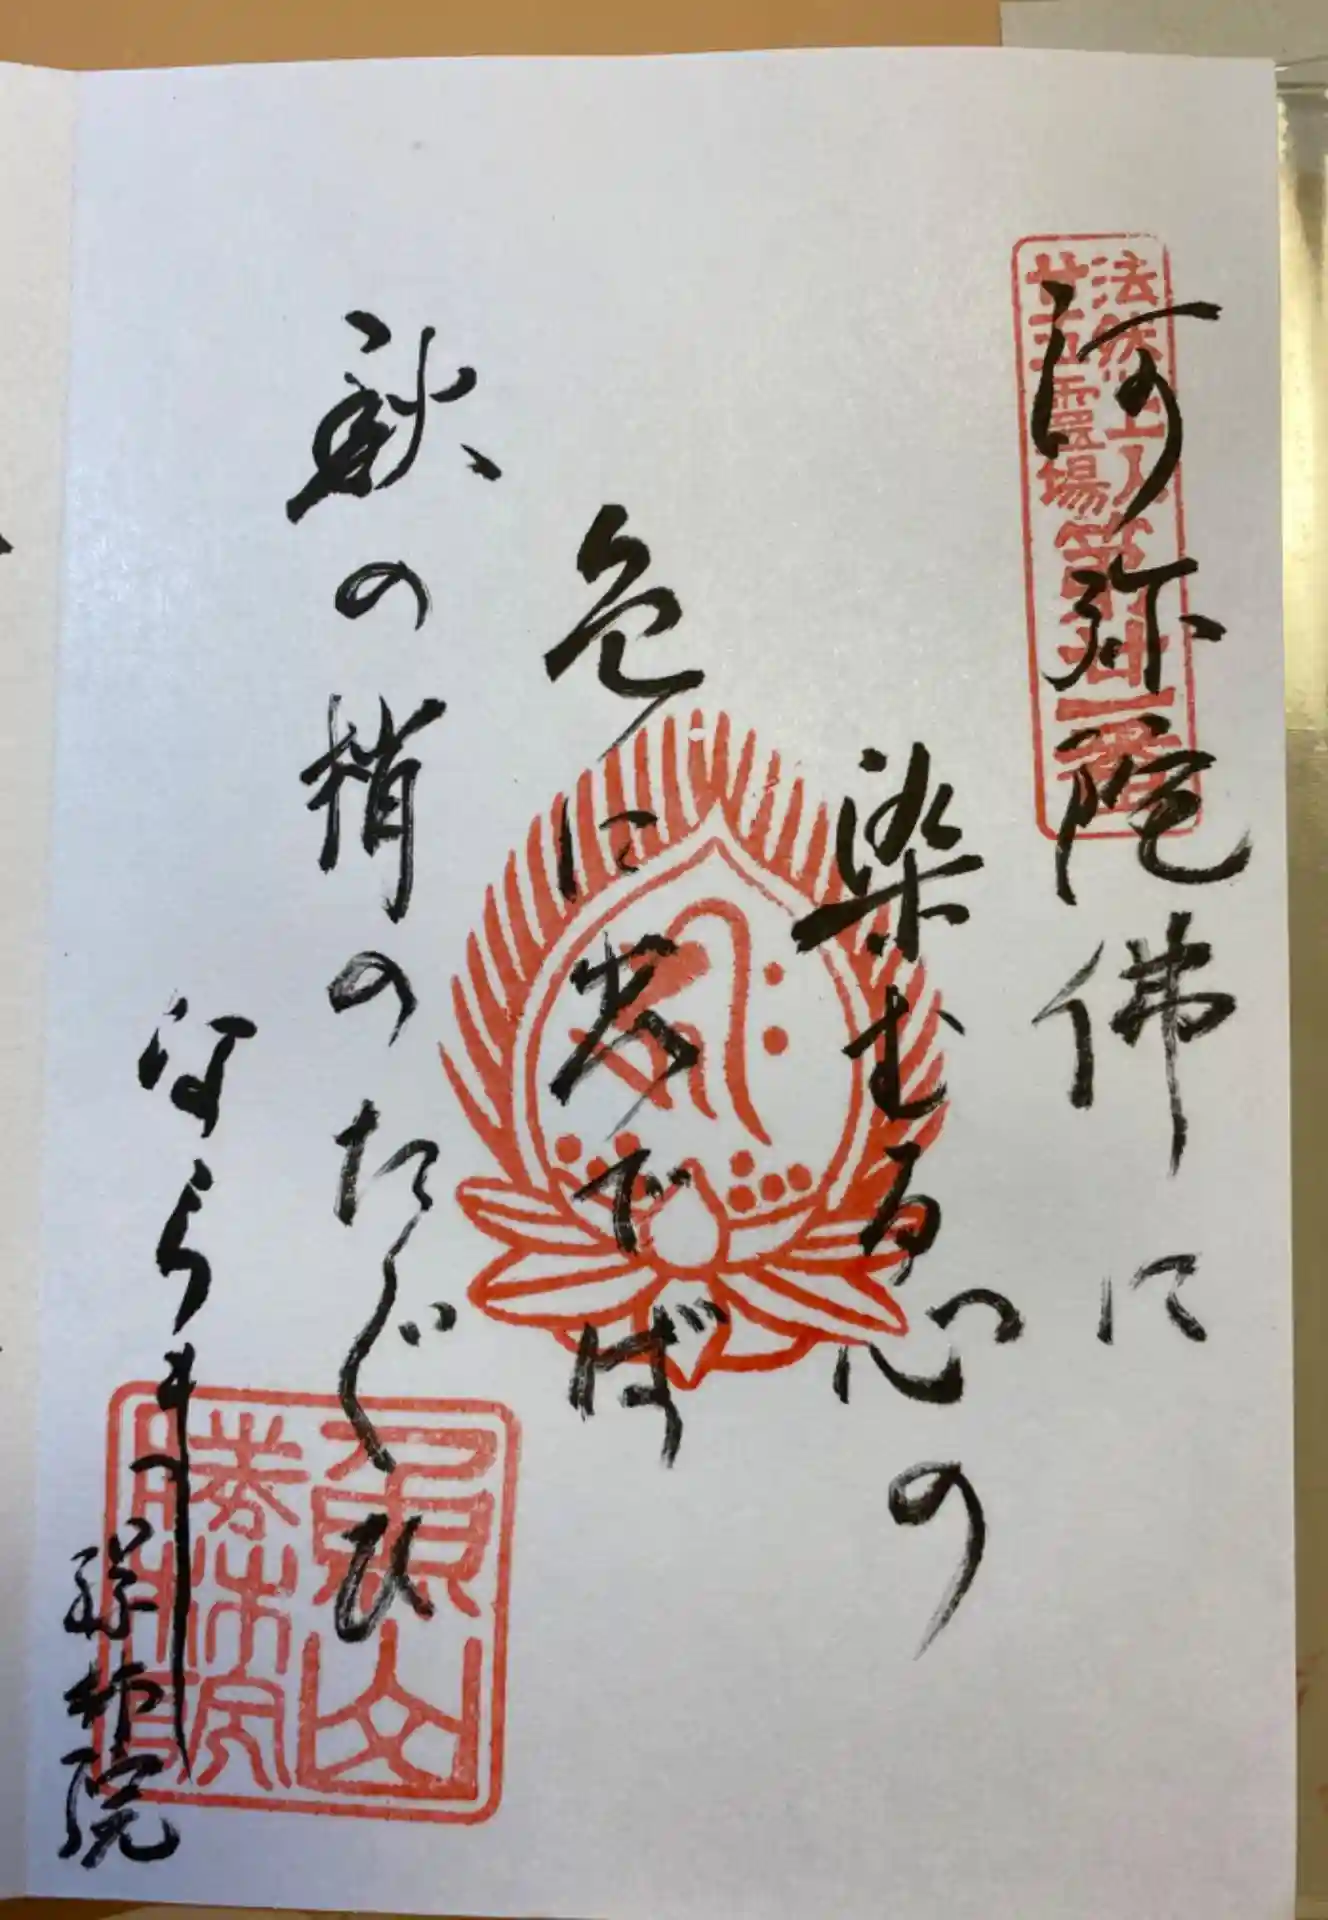 法然上人
廿五霊場
第廿一番
阿弥陀佛に
染むる心の
色に出でば
秋の梢のたぐひ
ならまし
勝林院
魚山
勝林院